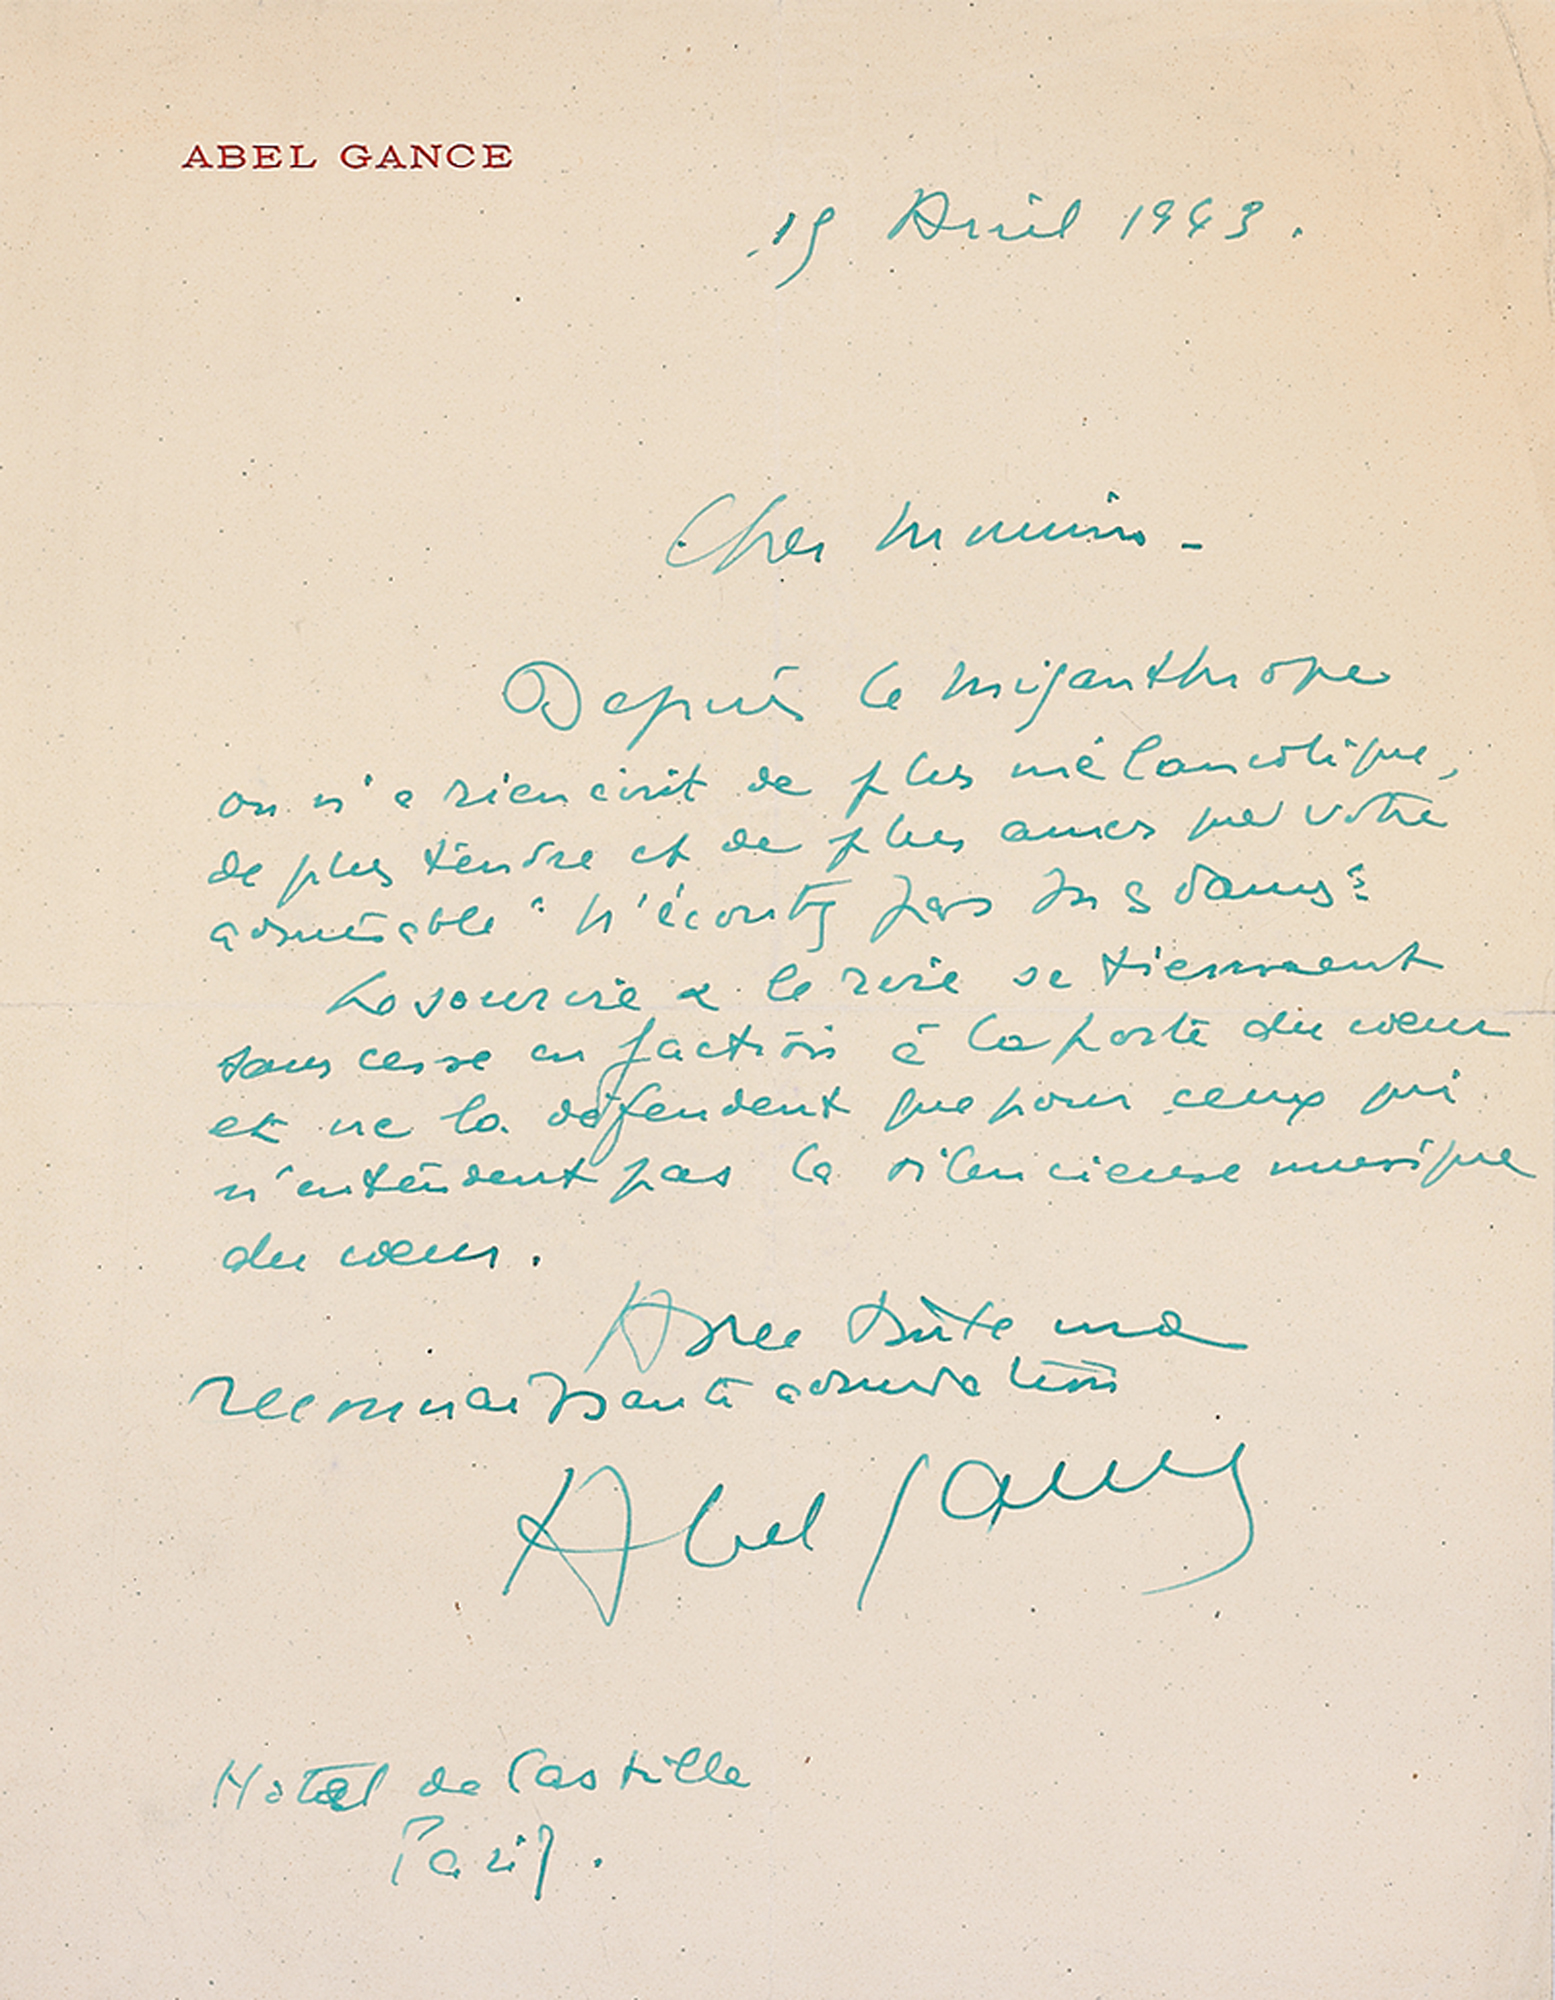 ABEL GANCE
19 Avril 1943.
Cher
Depuis le Misanthrope
on n'a rien écrit de plus mélancolique,
de plus tendre et de plus amer que votre
admirable "N'écoutez pas Mesdames".
Le sourire & le rire se tiennent
sans cesse en faction à la porte du cœur
et ne la défendent que pour ceux qui
n'entendent pas la silencieuse musique
du cœur.
Avec toute ma
reconnaissante admiration
Abel Gance
Hotel de Castille
Paris.